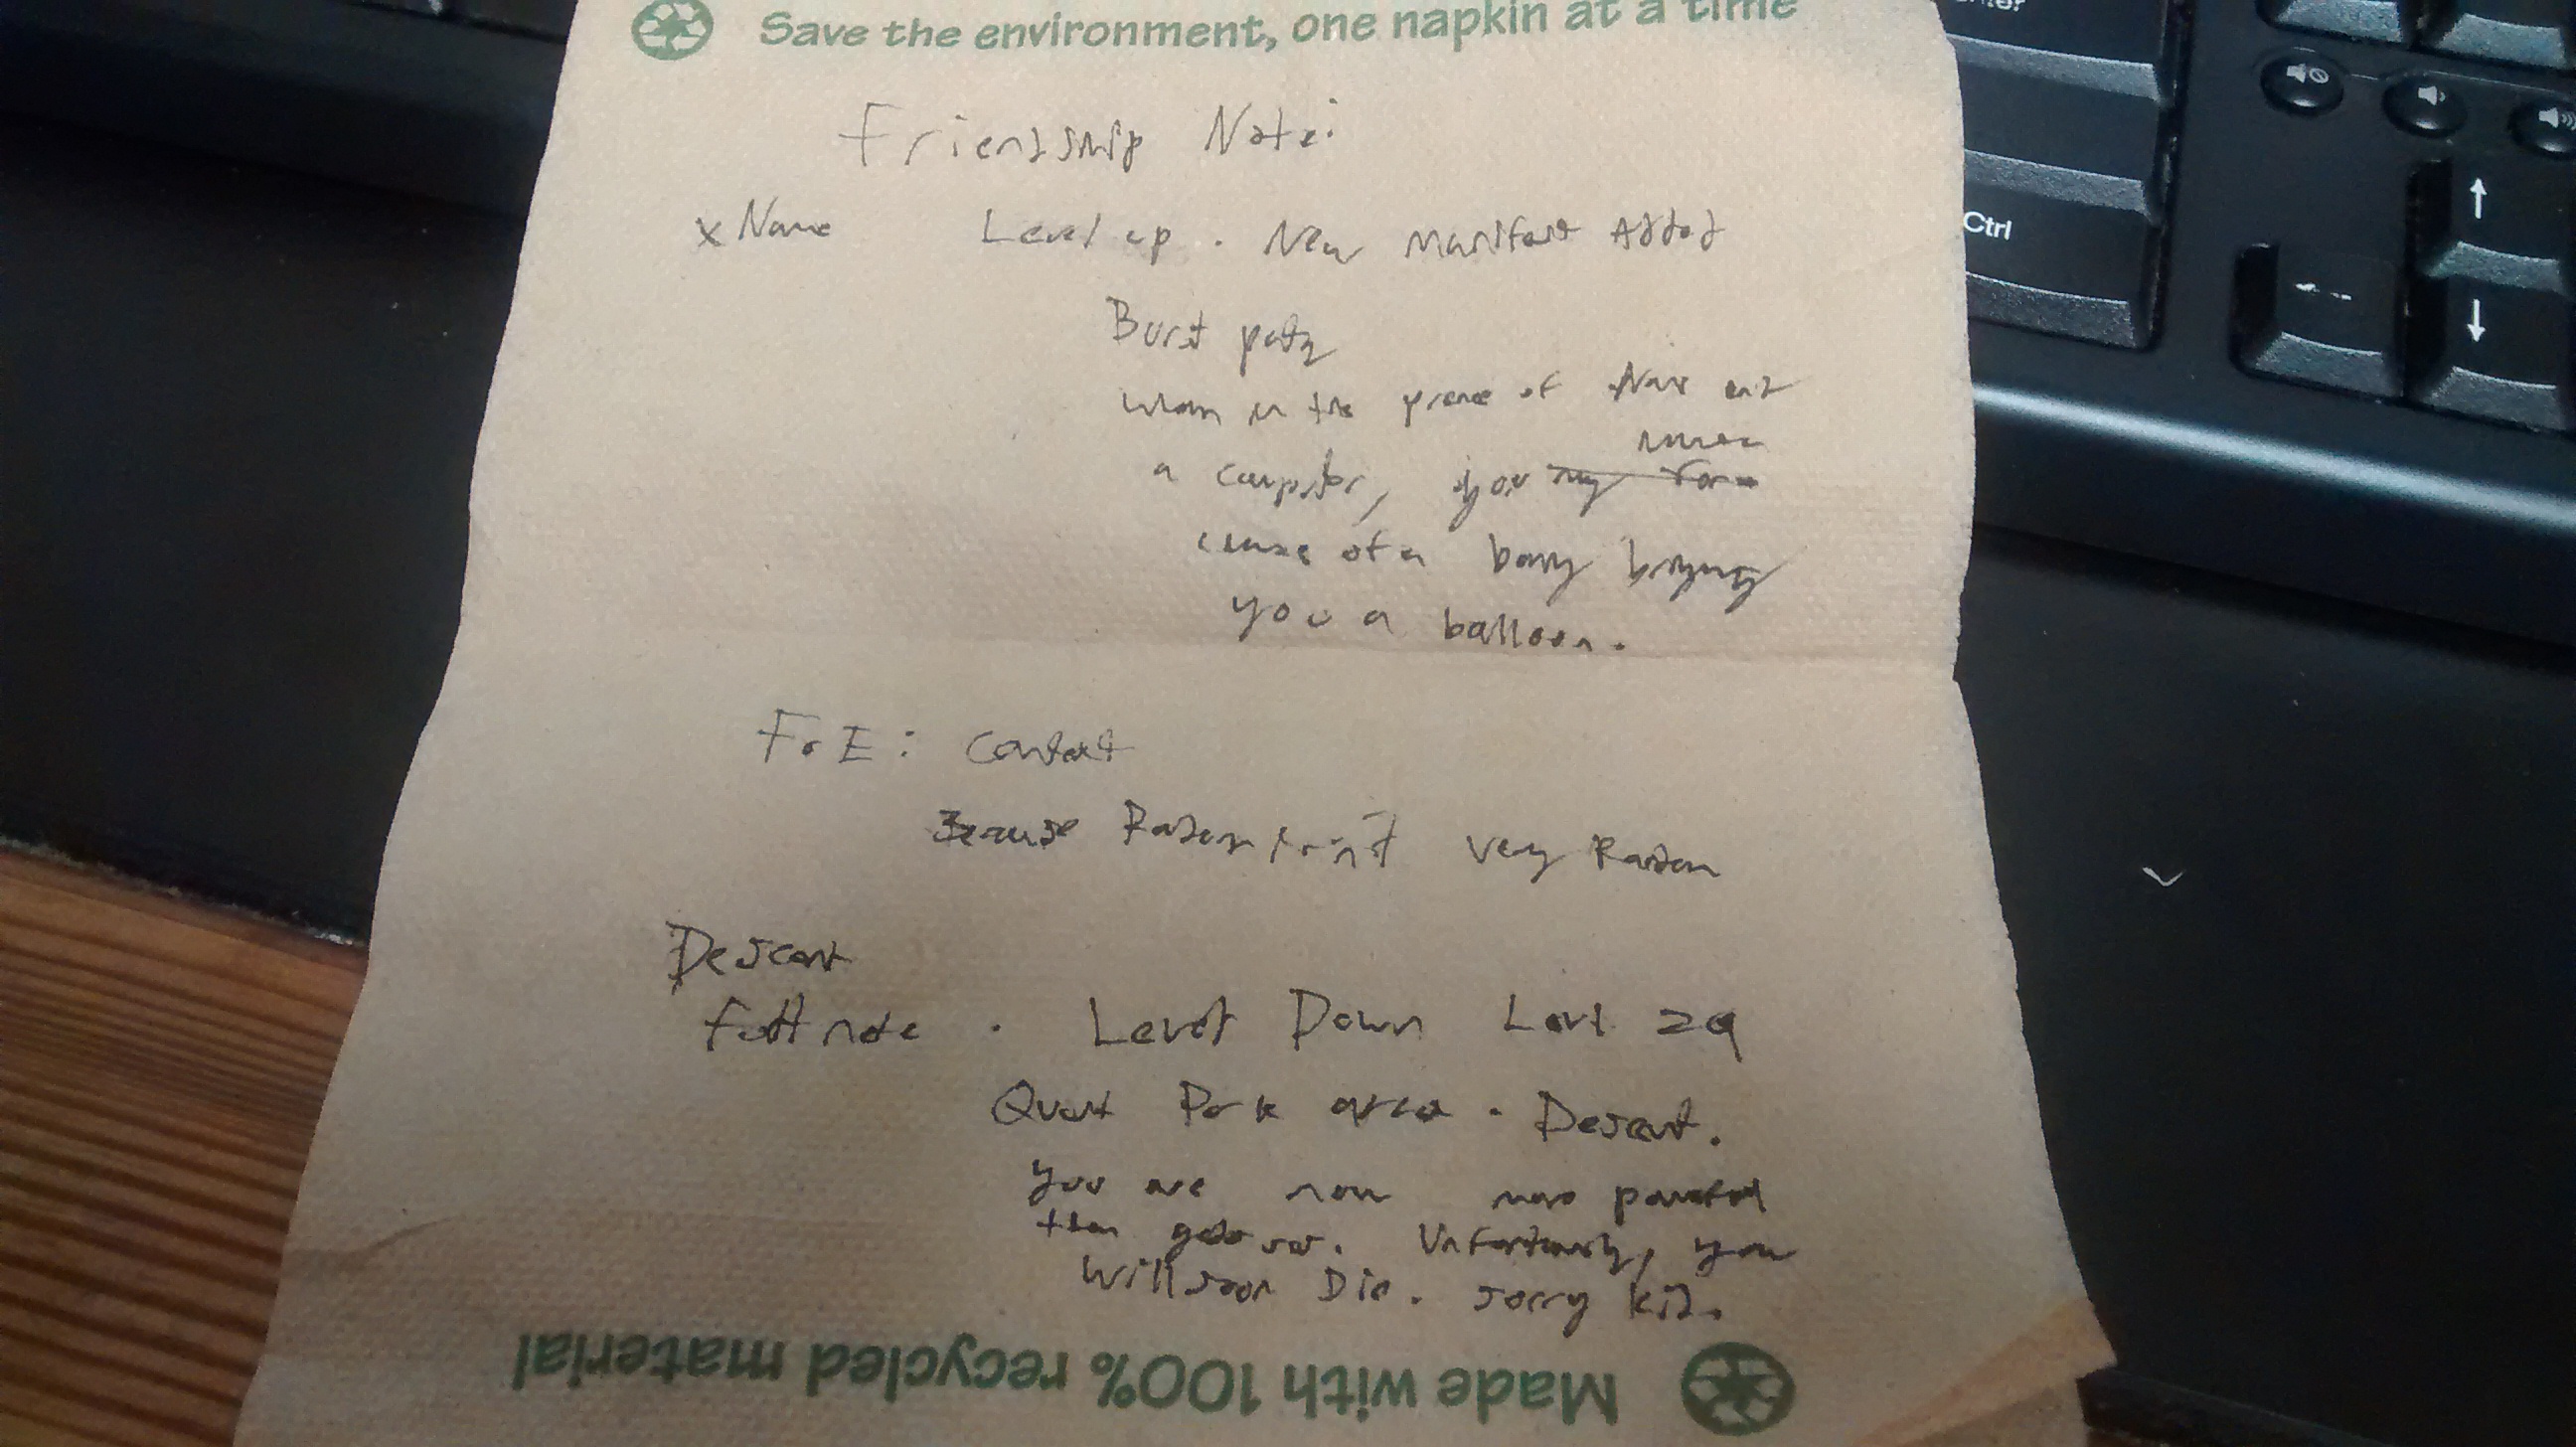 Save the environment, one napkin at a time
Friendship Note:
x Name Level up. New Manifest Added
Burst party
when in the of Name and
a computer, you
of a bunny bringing
you a balloon.
For E: Context
Because Random isn't very Random
Descent
footnote. Level Down Level 29
Quest Perk area. Descent.
You are now more powerful
than . Unfortunately, you
Will soon Die. Sorry kid.
Made with 100% recycled material
enter
Ctrl